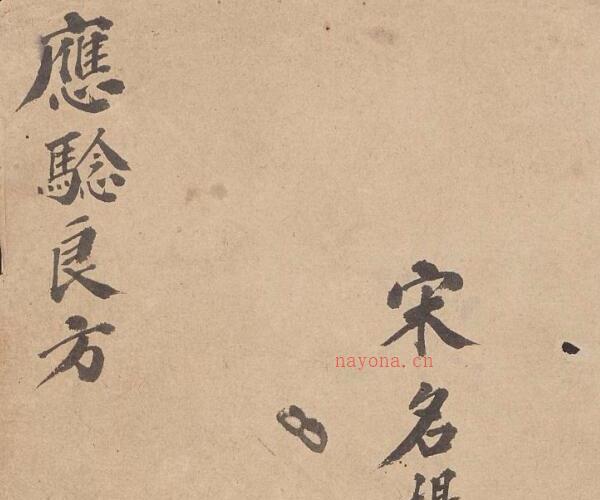 應騐良方
宋名
nayona.cn
8